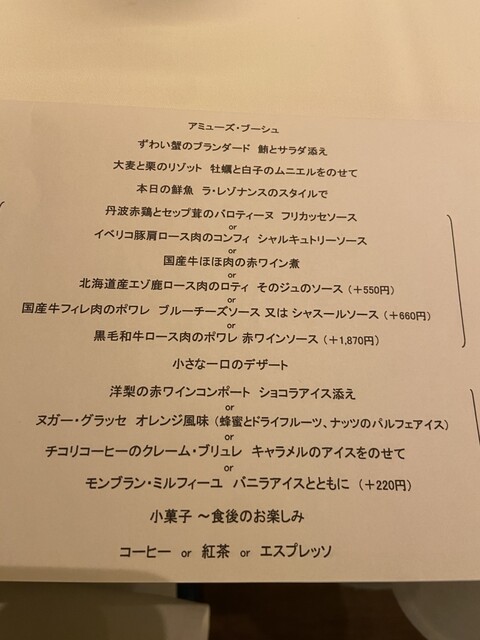 アミューズ・ブーシュ
ずわい蟹のブランダード 鮪とサラダ添え
大麦と栗のリゾット 牡蠣と白子のムニエルをのせて
本日の鮮魚 ラ・レゾナンスのスタイルで
丹波赤鶏とセップ茸のバロティーヌ フリカッセソース
or
イベリコ豚肩ロース肉のコンフィ シャルキュトリーソース
or
国産牛ほほ肉の赤ワイン煮
or
北海道産エゾ鹿ロース肉のロティ そのジュのソース (+550円)
or
国産牛フィレ肉のポワレ ブルーチーズソース 又は シャスールソース (+660円)
or
黒毛和牛ロース肉のポワレ 赤ワインソース (+1,870円)
小さな一口のデザート
洋梨の赤ワインコンポート ショコラアイス添え
or
ヌガー・グラッセ オレンジ風味 (蜂蜜とドライフルーツ、ナッツのパルフェアイス)
or
チコリコーヒーのクレーム・ブリュレ キャラメルのアイスをのせて
or
モンブラン・ミルフィーユ バニラアイスとともに (+220円)
小菓子 ~食後のお楽しみ
コーヒー or 紅茶 or エスプレッソ